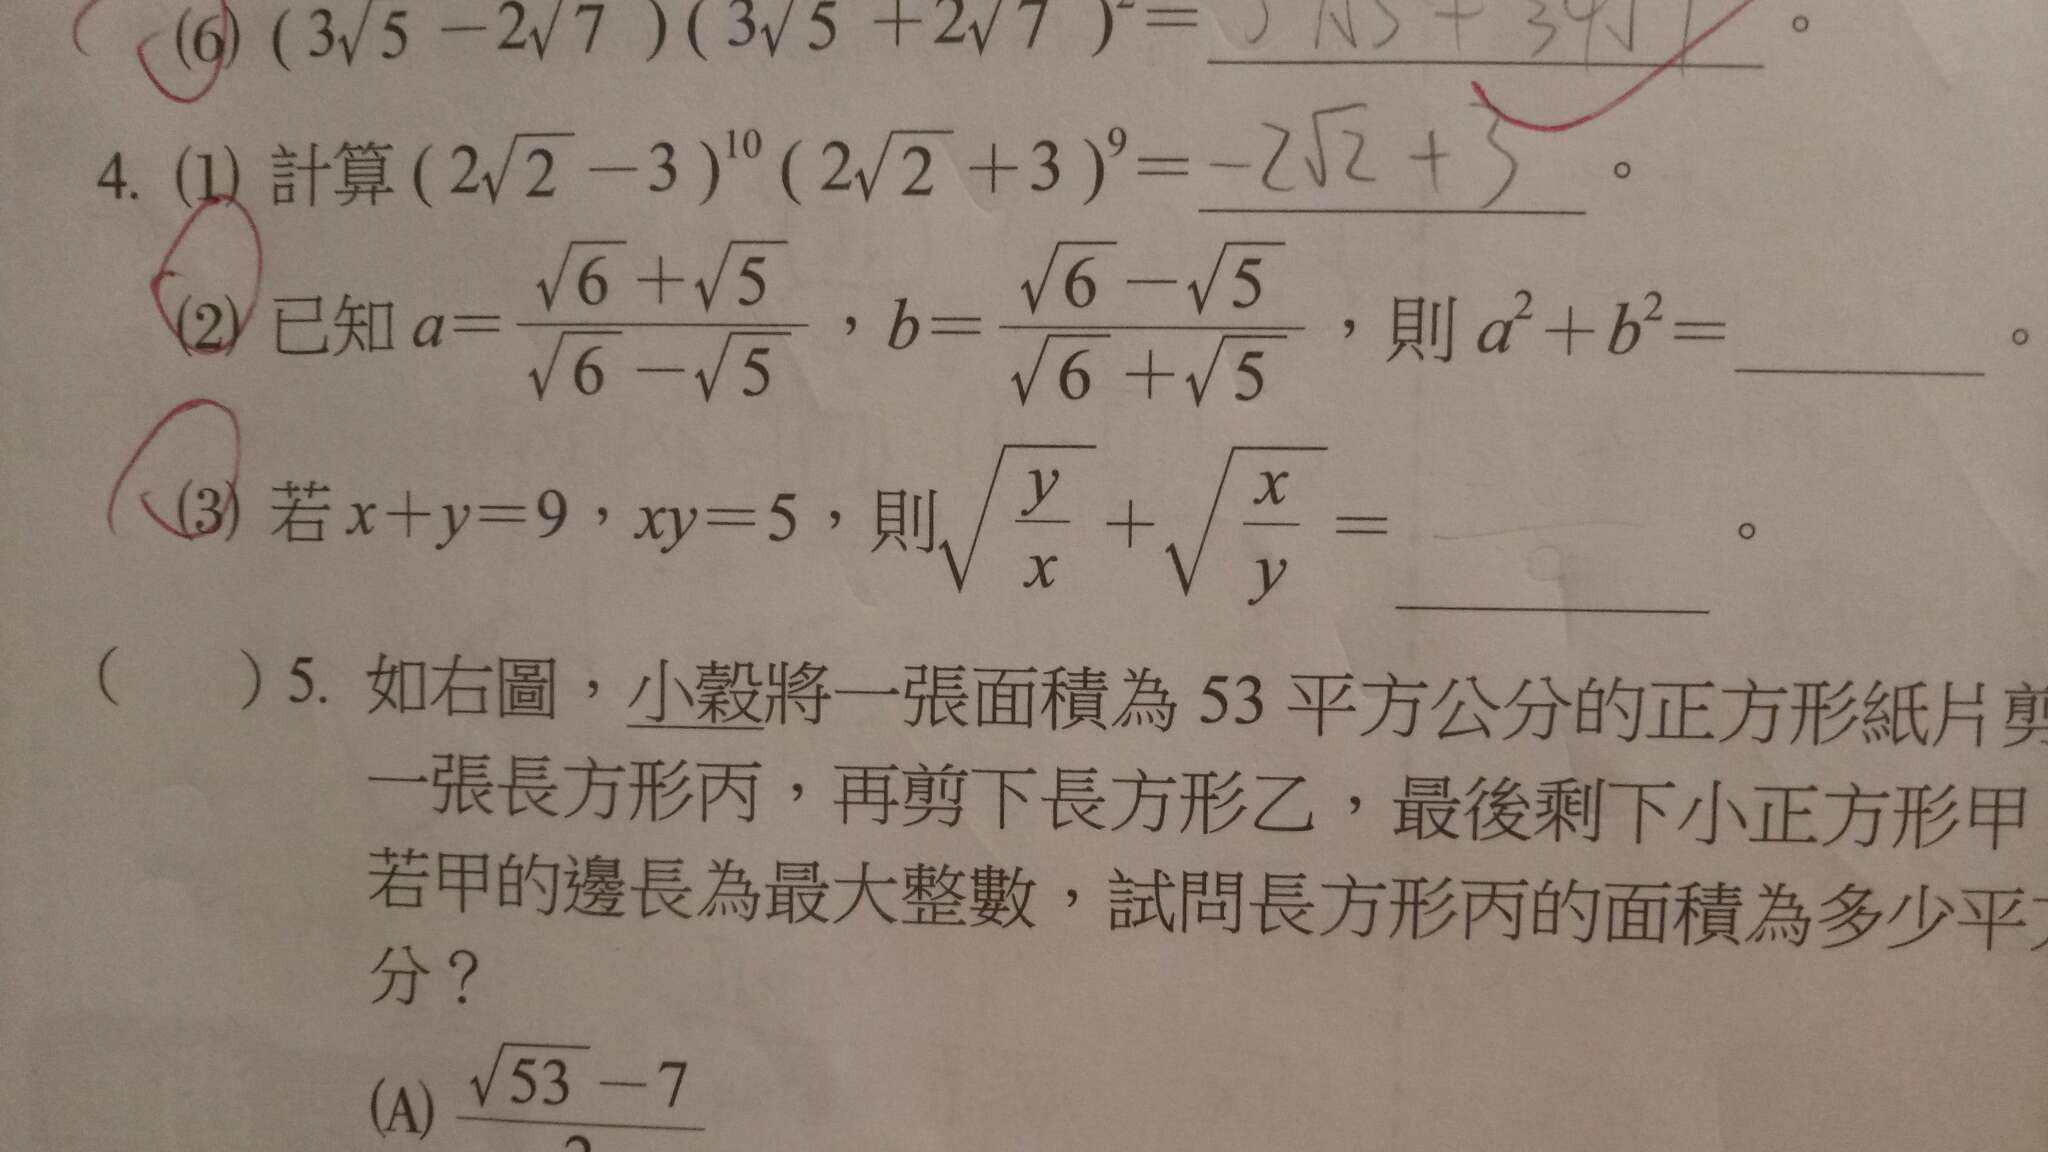 (6) (3√5 −2√7 )(3√5 +2√7 )²=
4. (1) 計算(2√2 −3)¹⁰(2√2 +3)⁹= -2√2 + 3 。
(2) 已知 a=(√6+√5)/(√6−√5),b=(√6−√5)/(√6+√5),則 a²+b²=______。
(3) 若 x+y=9,xy=5,則√(y/x)+√(x/y)=______。
( )5. 如右圖,小穀將一張面積為 53 平方公分的正方形紙片剪
一張長方形丙,再剪下長方形乙,最後剩下小正方形甲
若甲的邊長為最大整數,試問長方形丙的面積為多少平方
分?
(A) (√53 −7)/2